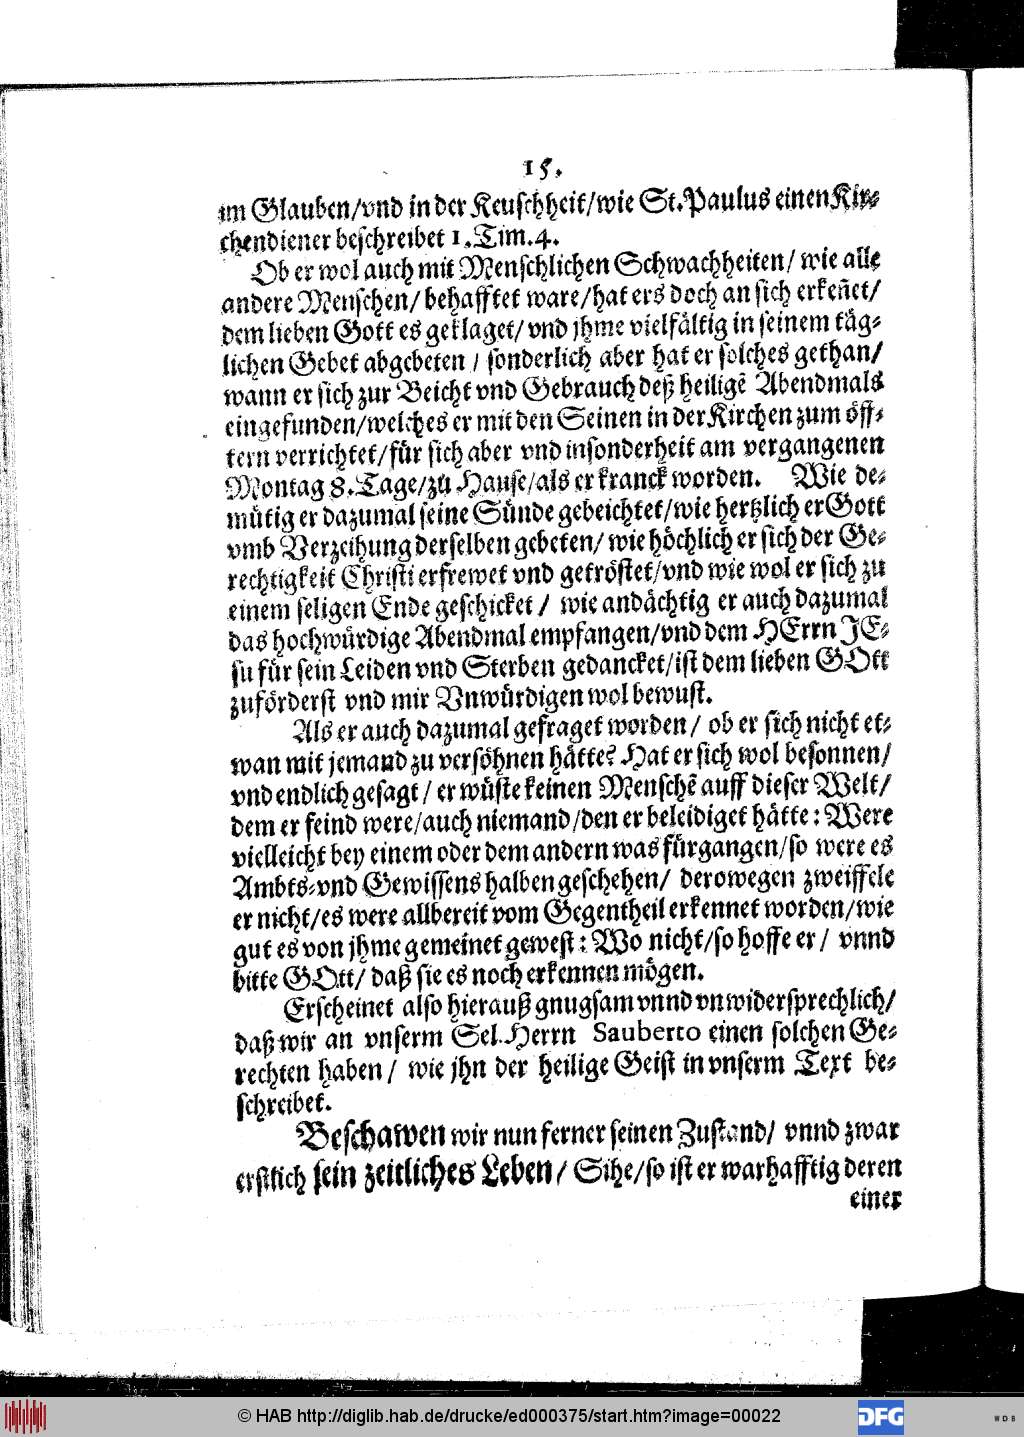 15.
im Glauben/vnd in der Keuschheit/wie St. Paulus einen Kir-
chendiener beschreibet 1. Tim. 4.
Ob er wol auch mit Menschlichen Schwachheiten/ wie alle
andere Menschen/ behafftet ware/hat ers doch an sich erkeñet/
dem lieben Gott es geklaget/ vnd jhme vielfältig in seinem täg-
lichen Gebet abgebeten / sonderlich aber hat er solches gethan/
wann er sich zur Beicht vnd Gebrauch deß heiligẽ Abendmals
eingefunden/welches er mit den Seinen in der Kirchen zum öff-
tern verrichtet/für sich aber vnd insonderheit am vergangenen
Montag 8. Tage/zu Hause/als er kranck worden. Wie de-
mütig er dazumal seine Sünde gebeichtet/wie hertzlich er Gott
vmb Verzeihung derselben gebeten/ wie höchlich er sich der Ge-
rechtigkeit Christi erfrewet vnd getröstet/vnd wie wol er sich zu
einem seligen Ende geschicket / wie andächtig er auch dazumal
das hochwürdige Abendmal empfangen/vnd dem HErrn JE-
su für sein Leiden vnd Sterben gedancket/ist dem lieben GOtt
zuförderst vnd mir Vnwürdigen wol bewust.
Als er auch dazumal gefraget worden / ob er sich nicht et-
wan mit jemand zu versöhnen hätte? Hat er sich wol besonnen/
vnd endlich gesagt / er wüste keinen Menschẽ auff dieser Welt/
dem er feind were/auch niemand/den er beleidiget hätte: Were
vielleicht bey einem oder dem andern was fürgangen/so were es
Ambts-vnd Gewissens halben geschehen/ derowegen zweiffele
er nicht/es were allbereit vom Gegentheil erkennet worden/wie
gut es von jhme gemeinet gewest: Wo nicht/so hoffe er / vnnd
bitte GOtt/ daß sie es noch erkennen mögen.
Erscheinet also hierauß gnugsam vnnd vnwidersprechlich/
daß wir an vnserm Sel. Herrn Sauberto einen solchen Ge-
rechten haben / wie jhn der heilige Geist in vnserm Text be-
schreibet.
Beschawen wir nun ferner seinen Zustand/ vnnd zwar
erstlich sein zeitliches Leben/ Sihe/so ist er warhafftig deren
einer
© HAB http://diglib.hab.de/drucke/ed000375/start.htm?image=00022
DFG
WDB